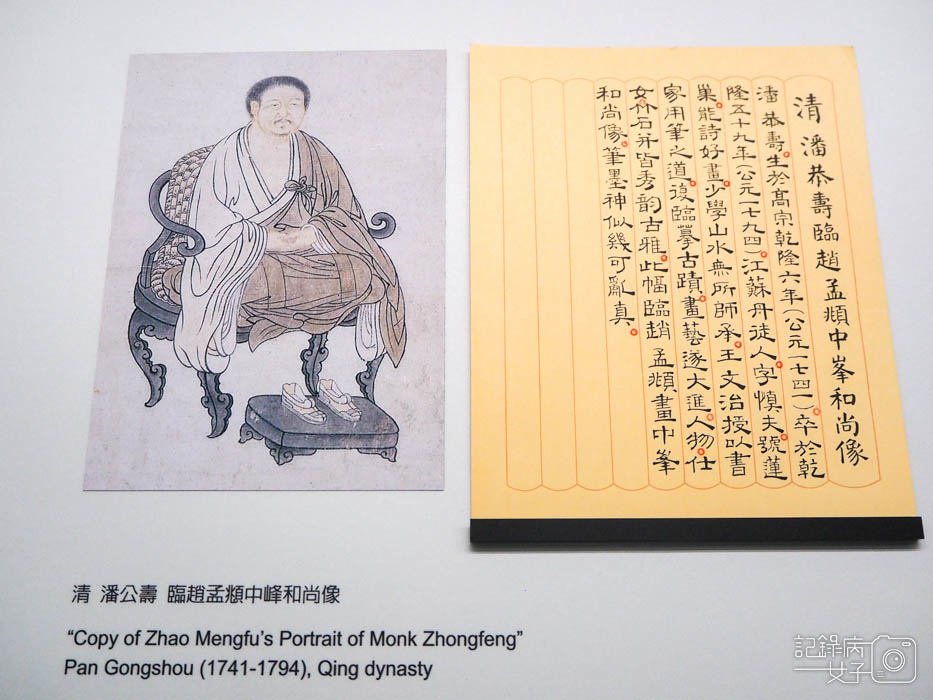 清 潘恭壽臨趙孟頫中峯和尚像
潘恭壽。生於髙宗乾隆六年(公元一七四一)。卒於乾
隆五十九年(公元一七九四)。江蘇丹徒人。字慎夫。號蓮
巢。能詩好畫。少學山水無所師承。王文治授以書
家用筆之道。復臨摹古蹟。畫藝遂大進。人物。仕
女。竹石并皆秀韵古雅。此幅臨趙孟頫畫中峯
和尚像。筆墨神似幾可亂真。
清 潘公壽 臨趙孟頫中峰和尚像
“Copy of Zhao Mengfu’s Portrait of Monk Zhongfeng”
Pan Gongshou (1741-1794), Qing dynasty
記錄病
女子